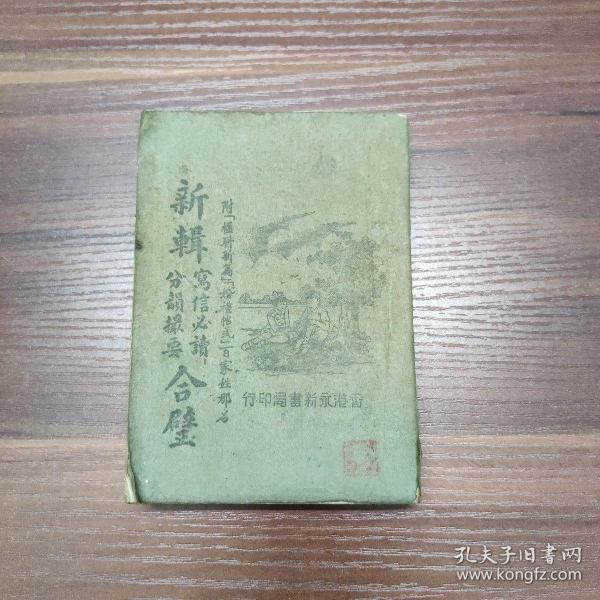 新輯寫信必讀分韻撮要合璧
附「楹聯新篇」「婚禮帖式」「百家姓郡名
香港永新書局印行
孔夫子旧书网
www.kongfz.com